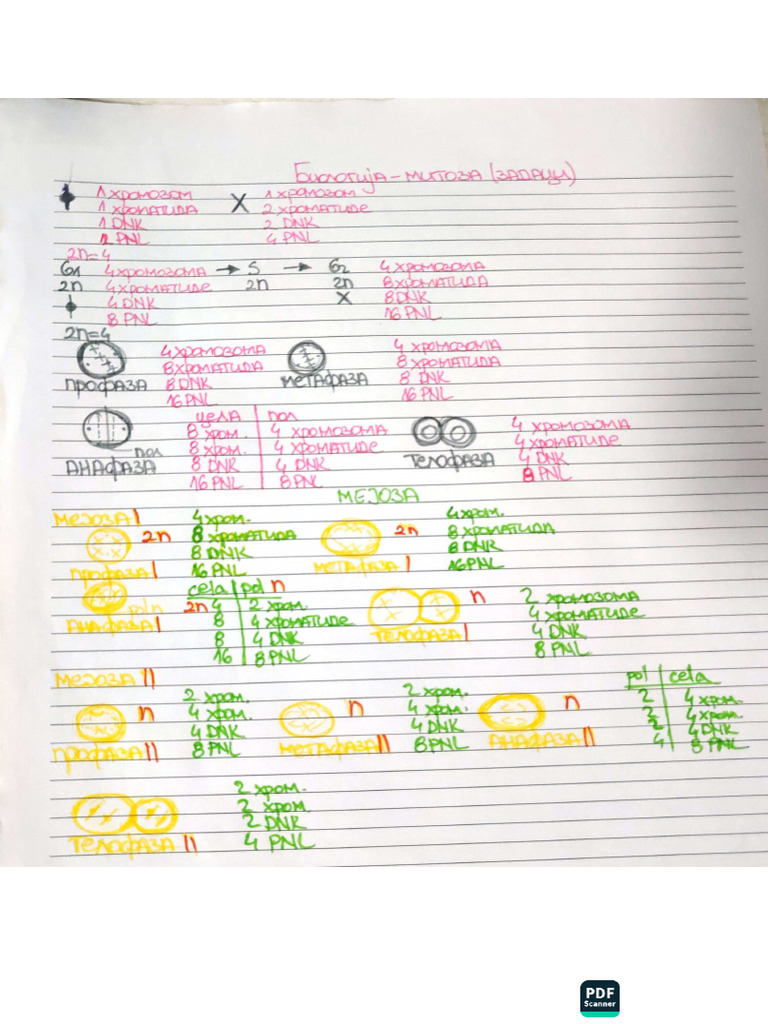 Биологија - митоза (задаци)
1 хромозом 1 хромозом
1 хроматида X 2 хроматиде
1 DNK 2 DNK
2 PNL 4 PNL
2n=4
G1 4 хромозома → S → G2 4 хромозома
2n 4 хроматиде 2n 2n 8 хроматида
4 DNK X 8 DNK
8 PNL 16 PNL
2n=4
4 хромозома 4 хромозома
8 хроматида 8 хроматида
профаза 8 DNK метафаза 8 DNK
16 PNL 16 PNL
цела | пол
8 хром. | 4 хромозома 4 хромозома
пол 8 хром. | 4 хроматиде 4 хроматиде
анафаза 8 DNK | 4 DNK телофаза 4 DNK
16 PNL | 8 PNL 8 PNL
мејоза
мејоза I 4 хром. 4 хром.
2n 8 хроматида 2n 8 хроматида
8 DNK 8 DNK
профаза I 16 PNL метафаза I 16 PNL
cela | pol n
pol n 2n 4 | 2 хром. n 2 хромозома
анафаза I 8 | 4 хроматиде 4 хроматиде
8 | 4 DNK телофаза I 4 DNK
16 | 8 PNL 8 PNL
мејоза II pol | cela
2 хром. 2 хром. 2 | 4 хром.
n 4 хром. n 4 хром. n 2 | 4 хром.
4 DNK 4 DNK 2 | 4 DNK
профаза II 8 PNL метафаза II 8 PNL анафаза II 4 | 8 PNL
2 хром.
2 хром
2 DNK
телофаза II 4 PNL
PDF
Scanner